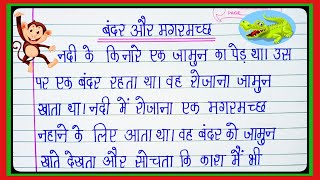 बंदर और मगरमच्छ
नदी के किनारे एक जामुन का पेड़ था। उस
पर एक बंदर रहता था। वह रोजाना जामुन
खाता था। नदी में रोजाना एक मगरमच्छ
नहाने के लिए आता था। वह बंदर को जामुन
खाते देखता और सोचता कि काश मैं भी